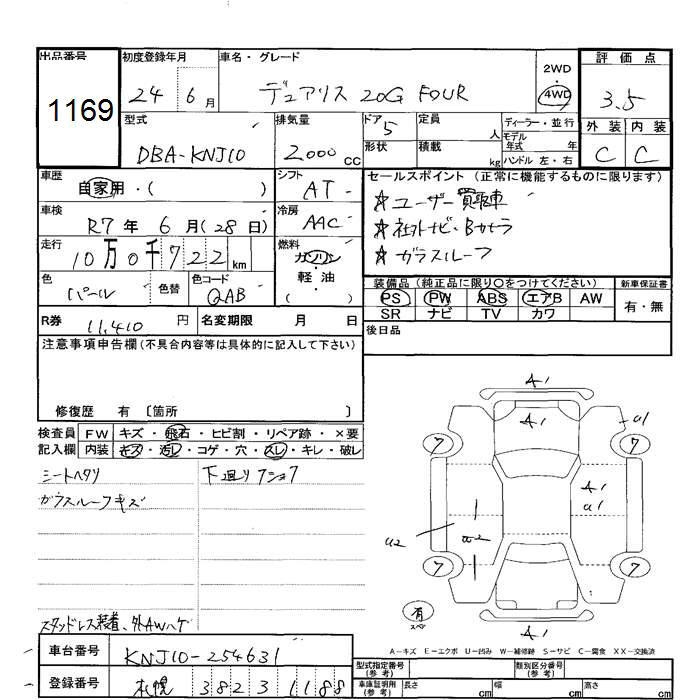 出品番号 初度登録年月 車名・グレード 評価点
1169 24 6月 デュアリス 20G FOUR 2WD・4WD 3.5
型式 排気量 ドア 5 定員 人 ディーラー・並行 外装 内装
DBA-KNJ10 2000cc 形状 積載 kg モデル年式 年 C C
ハンドル 左・右
車歴 自家用・( ) シフト AT セールスポイント (正常に機能するものに限ります)
車検 R7年 6月(28日) 冷房 AAC ☆ユーザー買取車
☆社外ナビ・Bカメラ
走行 10万0千722km 燃料 ガソリン・軽油 ☆ガラスルーフ
( )
色 パール 色替 色コード QAB 装備品 (純正品に限り○をつけてください) 新車保証書
PS PW ABS エアB AW 有・無
SR ナビ TV カワ
R券 11,410円 名変期限 月 日 後日品
注意事項申告欄(不具合内容等は具体的に記入して下さい)
修復歴 有 〔箇所 〕
検査員 FW キズ・飛石・ヒビ割・リペア跡・×要
記入欄 内装 キズ・汚レ・コゲ・穴・スレ・キレ・破レ
シートヘタリ 下廻りフショク
ガラスルーフキズ
A1
A1 a1
7 7
A1
a1
a2 a2
7 7
有
スペア
A1
スタッドレス装着、外AWハゲ
A-キズ E-エクボ U-凹み W-補修跡 S-サビ C-腐食 XX-交換済
車台番号 KNJ10-254631 型式指定番号(参考) 類別区分番号(参考)
登録番号 札幌 3823 1188 車庫証明用(参考) 長さ cm 幅 cm 高さ cm